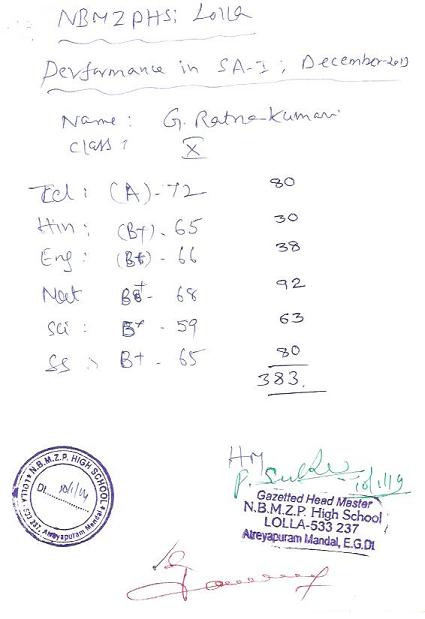 NBMZPHS; Lolla
Performance in SA-I; December-2013
Name: G. Ratna Kumari
Class: X
Tel: (A)-72 80
Hin: (B+)-65 30
Eng: (B+)-66 38
Mat B+-68 92
Sci: B+-59 63
SS: B+-65 80
383.
N.B.M.Z.P. HIGH SCHOOL
LOLLA-533 237, Atreyapuram Mandal
Dt.
HM
Gazetted Head Master
N.B.M.Z.P. High School
LOLLA-533 237
Atreyapuram Mandal, E.G.Dt